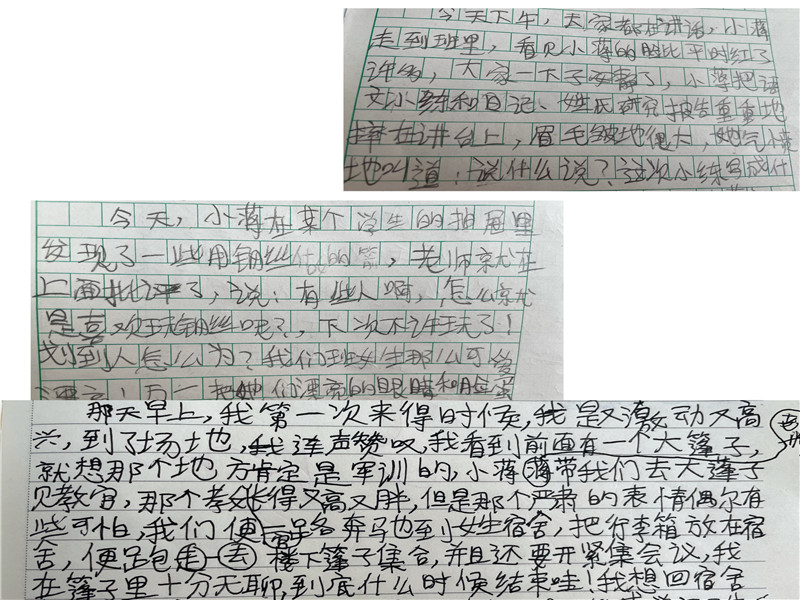 今天下午，大家都在讲话，小蒋
走到班里，看见小蒋的脸比平时红了
许多，大家一下子安静了，小蒋把语
文小练和日记、姓氏研究报告重重地
摔在讲台上，眉毛皱地很大，她气愤
地叫道：说什么说？这次小练写成什
今天，小蒋在某个学生的抽屉里
发现了一些用钢丝做的箭，老师就在
上面批评了，说：有些人啊，怎么就
是喜欢玩钢丝呢？，下次不许玩了！
划到人怎么为？我们班女生那么可爱
漂亮！万一把她们漂亮的眼睛和脸蛋
那天早上，我第一次来得时候，我是又激动又高
兴，到了场地，我连声赞叹，我看到前面有一个大篷子，
就想那个地方肯定是军训的，小蒋带我们去大篷子
见教官，那个教官长得又高又胖，但是那个严肃的表情偶尔有
些可怕，我们便各奔马也到女生宿舍，把行李箱放在宿
舍，便走去楼下篷子集合，并且还要开紧集会议，我
在篷子里十分无聊，到底什么时候结束哇！我想回宿舍